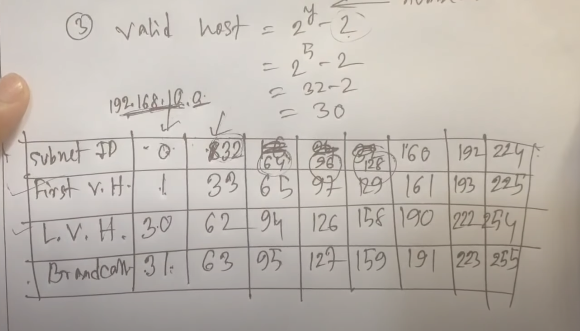 ③ Valid host = 2^y - 2
= 2^5 - 2
= 32-2
= 30
192.168.10.0
Subnet ID .0 32 64 96 128 160 192 224
First V.H. .1 33 65 97 129 161 193 225
L.V.H. 30 62 94 126 158 190 222 254
Brandcast 31. 63 95 127 159 191 223 255